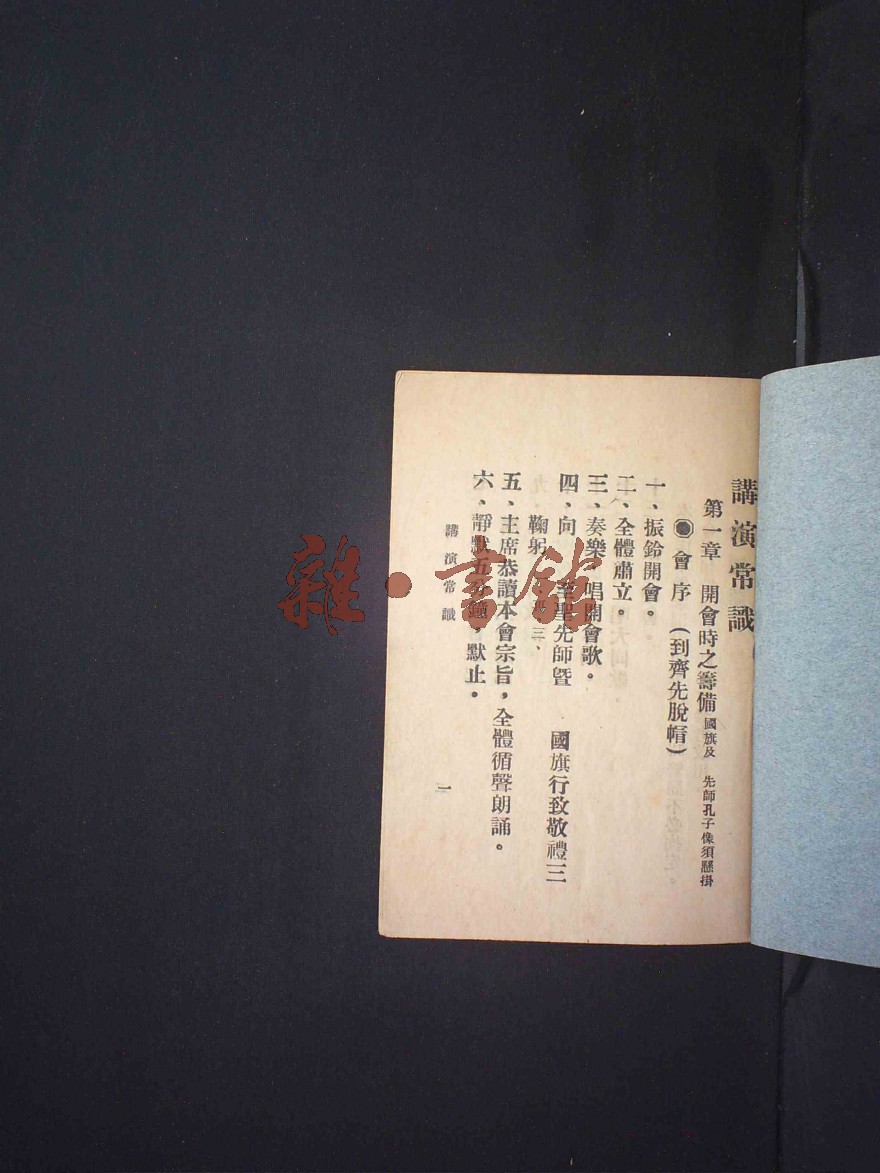 講演常識
第一章　開會時之籌備 國旗及　先師孔子像須懸掛
●會序（到齊先脫帽）
一、振鈴開會。
二、全體肅立。
三、奏樂　唱開會歌。
四、向　至聖先師暨　國旗行致敬禮三
鞠躬　三、
五、主席恭讀本會宗旨，全體循聲朗誦。
六、靜默五分鐘，默止。
講演常識
一
雜·書館